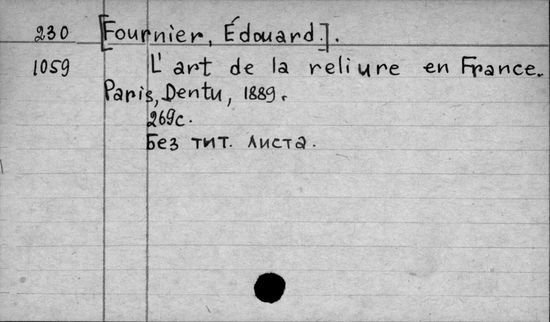 230 [Fournier, Édouard.].
1059 L'art de la reliure en France.
Paris, Dentu, 1889.
269с.
Без тит. листа.